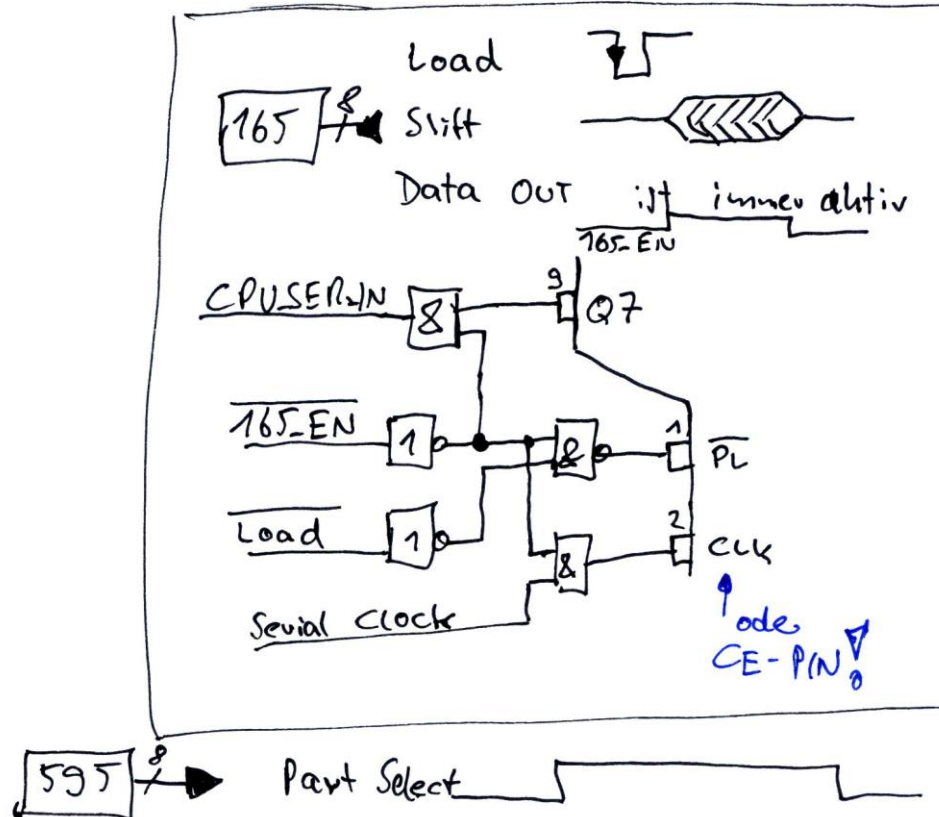 Load
165
8
Shift
Data OUT ist immer aktiv
165_EN
CPUSER-IN
&
9
Q7
165_EN
1
&
1
PL
Load
1
&
2
CLK
Serial Clock
oder
CE-PIN!
595
8
Part Select